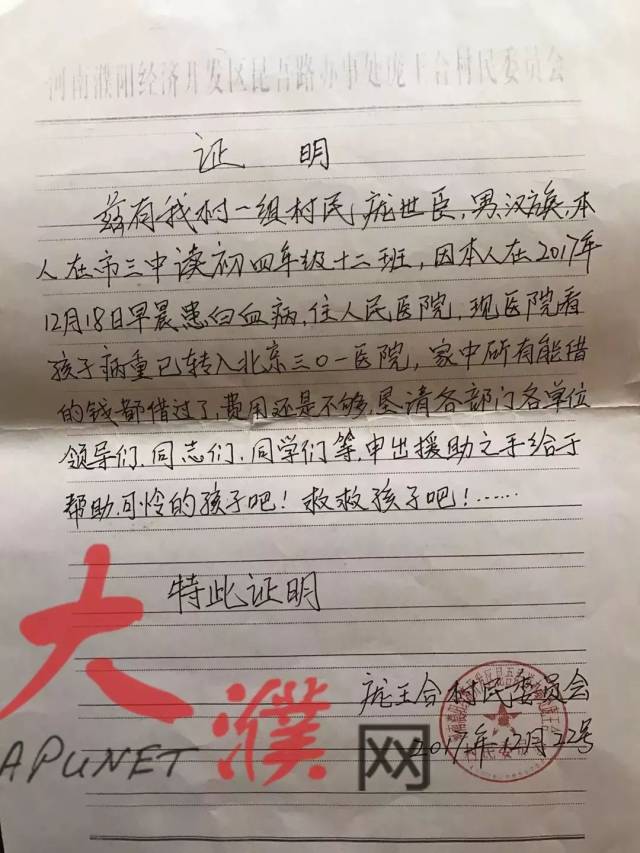 河南濮阳经济开发区昆吾路办事处庞王合村民委员会
证 明
兹有我村一组村民庞世臣,男,汉族,本
人在市三中读初四年级十二班,因本人在2017年
12月18日早晨患白血病,住人民医院,现医院看
孩子病重已转入北京三〇一医院,家中所有能借
的钱都借过了,费用还是不够,恳请各部门各单位
领导们、同志们、同学们等,申出援助之手给于
帮助,可怜的孩子吧!救救孩子吧!……
特此证明
庞王合村民委员会
2017年12月22号
大濮网
APUNET